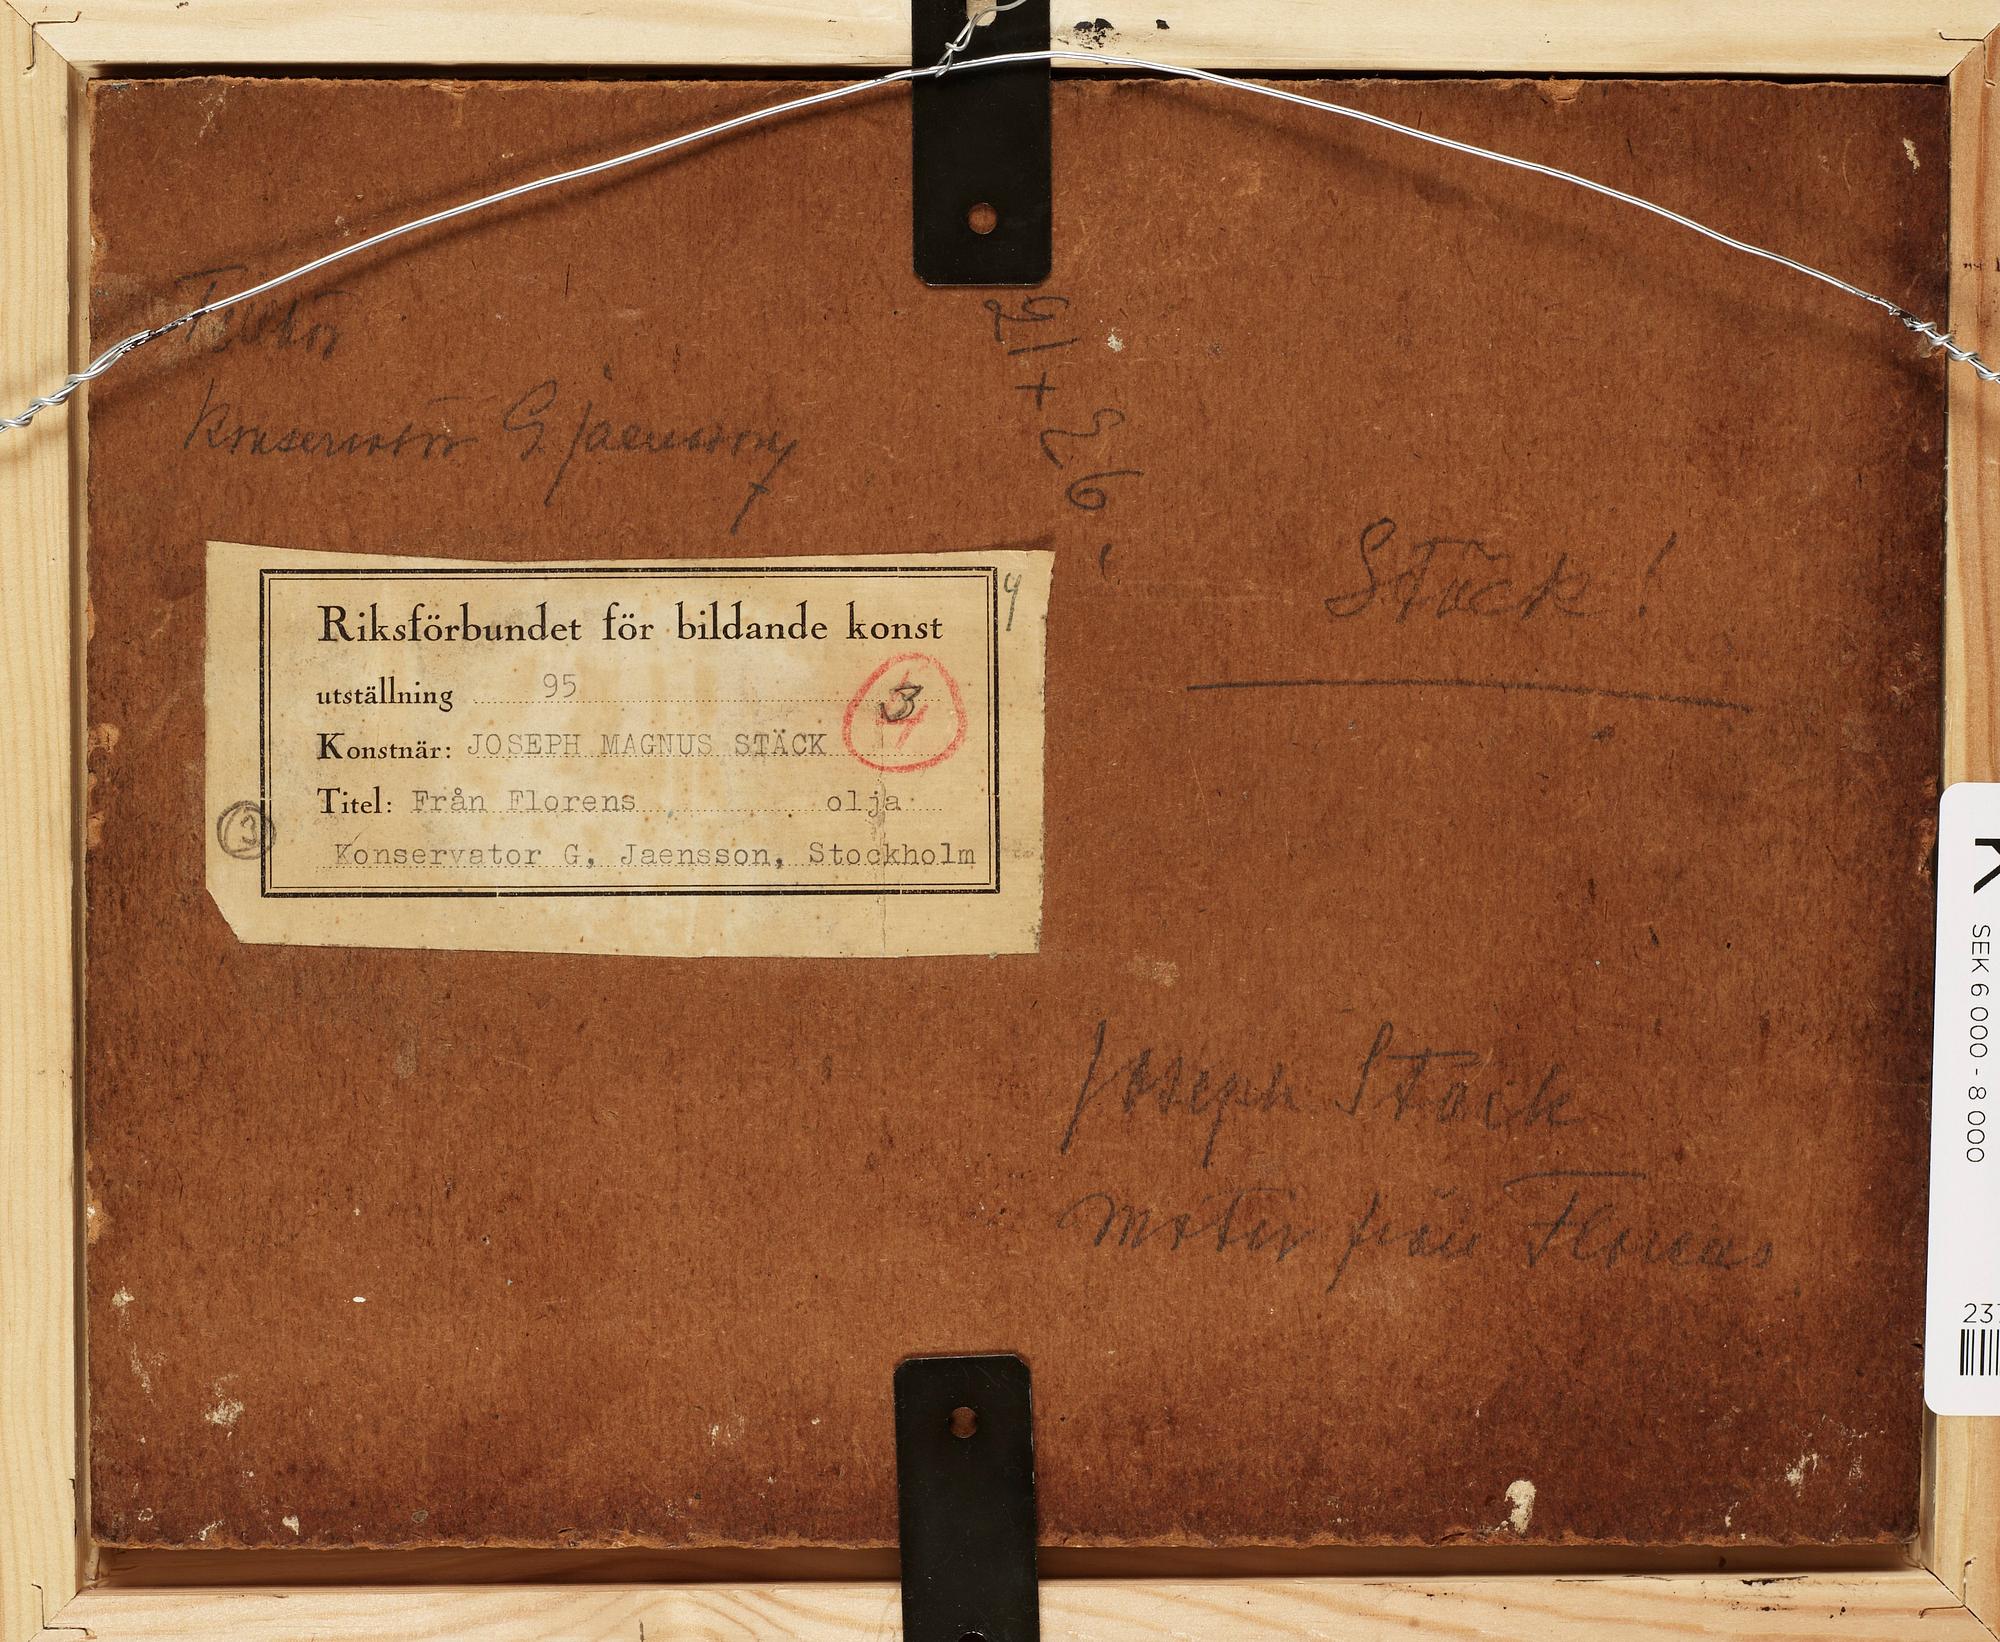 Konservator G Jaensson
21 + 26
Stäck!
4
Riksförbundet för bildande konst
utställning 95
3
Konstnär: JOSEPH MAGNUS STÄCK
Titel: Från Florens olja
3
Konservator G, Jaensson, Stockholm
Joseph Stäck
Motiv från Florens
K
SEK 6 000 - 8 000